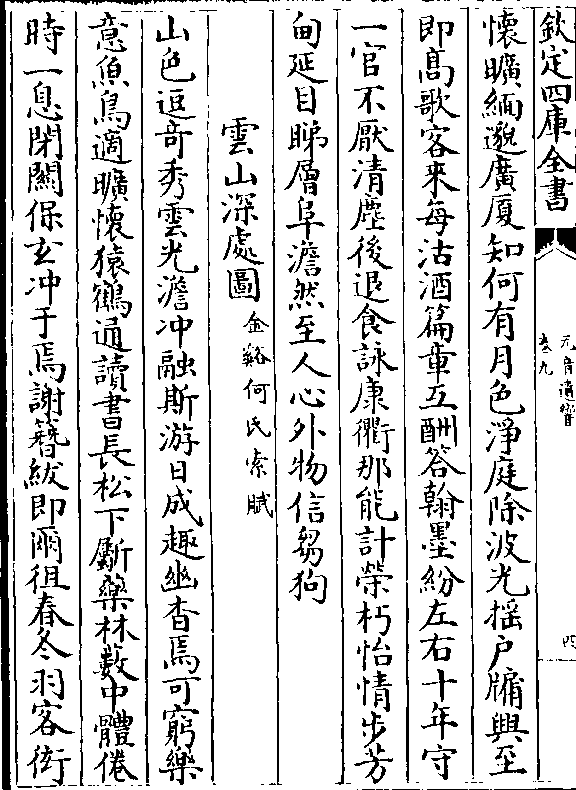 欽定四庫全書
元音遺響
卷九
四
懷曠緬邈廣厦知何有月色淨庭除波光揺户牖興至
即髙歌客來每沽酒篇章互酬答翰墨紛左右十年守
一官不厭清塵後退食詠康衢那能計榮朽怡情步芳
甸延目睇層阜澹然至人心外物信芻狗
雲山深處圖金谿何氏索賦
山色逗竒秀雲光澹冲融斯游日成趣幽杳焉可窮樂
意魚鳥適曠懷猿鶴通讀書長松下斸藥林藪中體倦
時一息閉關保玄冲于焉謝簪紱即爾徂春冬羽客衒